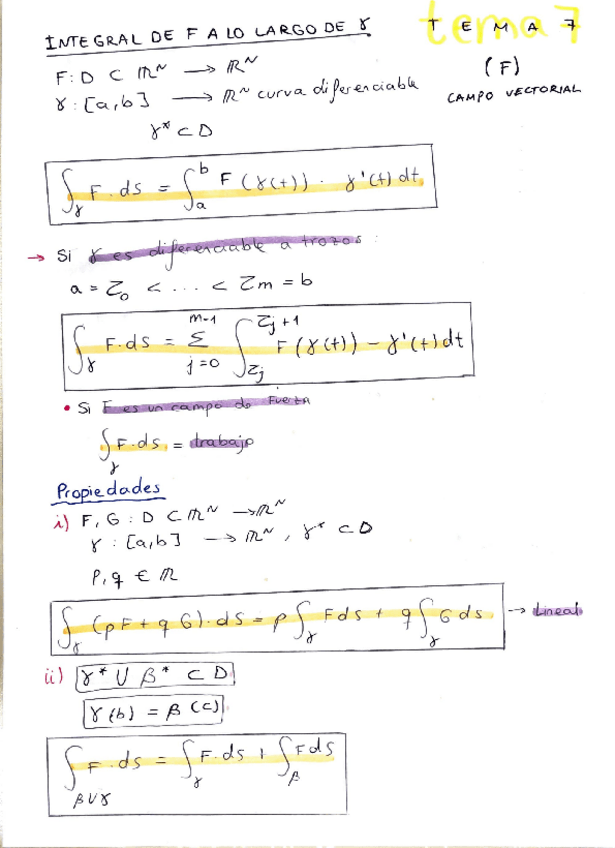 INTEGRAL DE F A LO LARGO DE γ
TEMA 7
tema 7
F: D ⊂ ℝᴺ → ℝᴺ
(F)
γ: [a,b] → ℝᴺ curva diferenciable
CAMPO VECTORIAL
γ* ⊂ D
∫_γ F·ds = ∫_a^b F(γ(t)) · γ'(t) dt
→ Si γ es diferenciable a trozos:
a = Z₀ < ... < Zm = b
∫_γ F·ds = Σ_{j=0}^{m-1} ∫_{Zj}^{Zj+1} F(γ(t)) – γ'(t) dt
• Si F es un campo de Fuerza
∫_γ F·ds = trabajo
Propiedades
i) F, G : D ⊂ ℝᴺ → ℝᴺ
γ : [a,b] → ℝᴺ, γ* ⊂ D
P, q ∈ ℝ
∫_γ (pF + qG)·ds = p∫_γ Fds + q∫_γ Gds → Lineal
ii) γ* ∪ β* ⊂ D
γ(b) = β(c)
∫_{β∪γ} F·ds = ∫_γ F·ds + ∫_β Fds